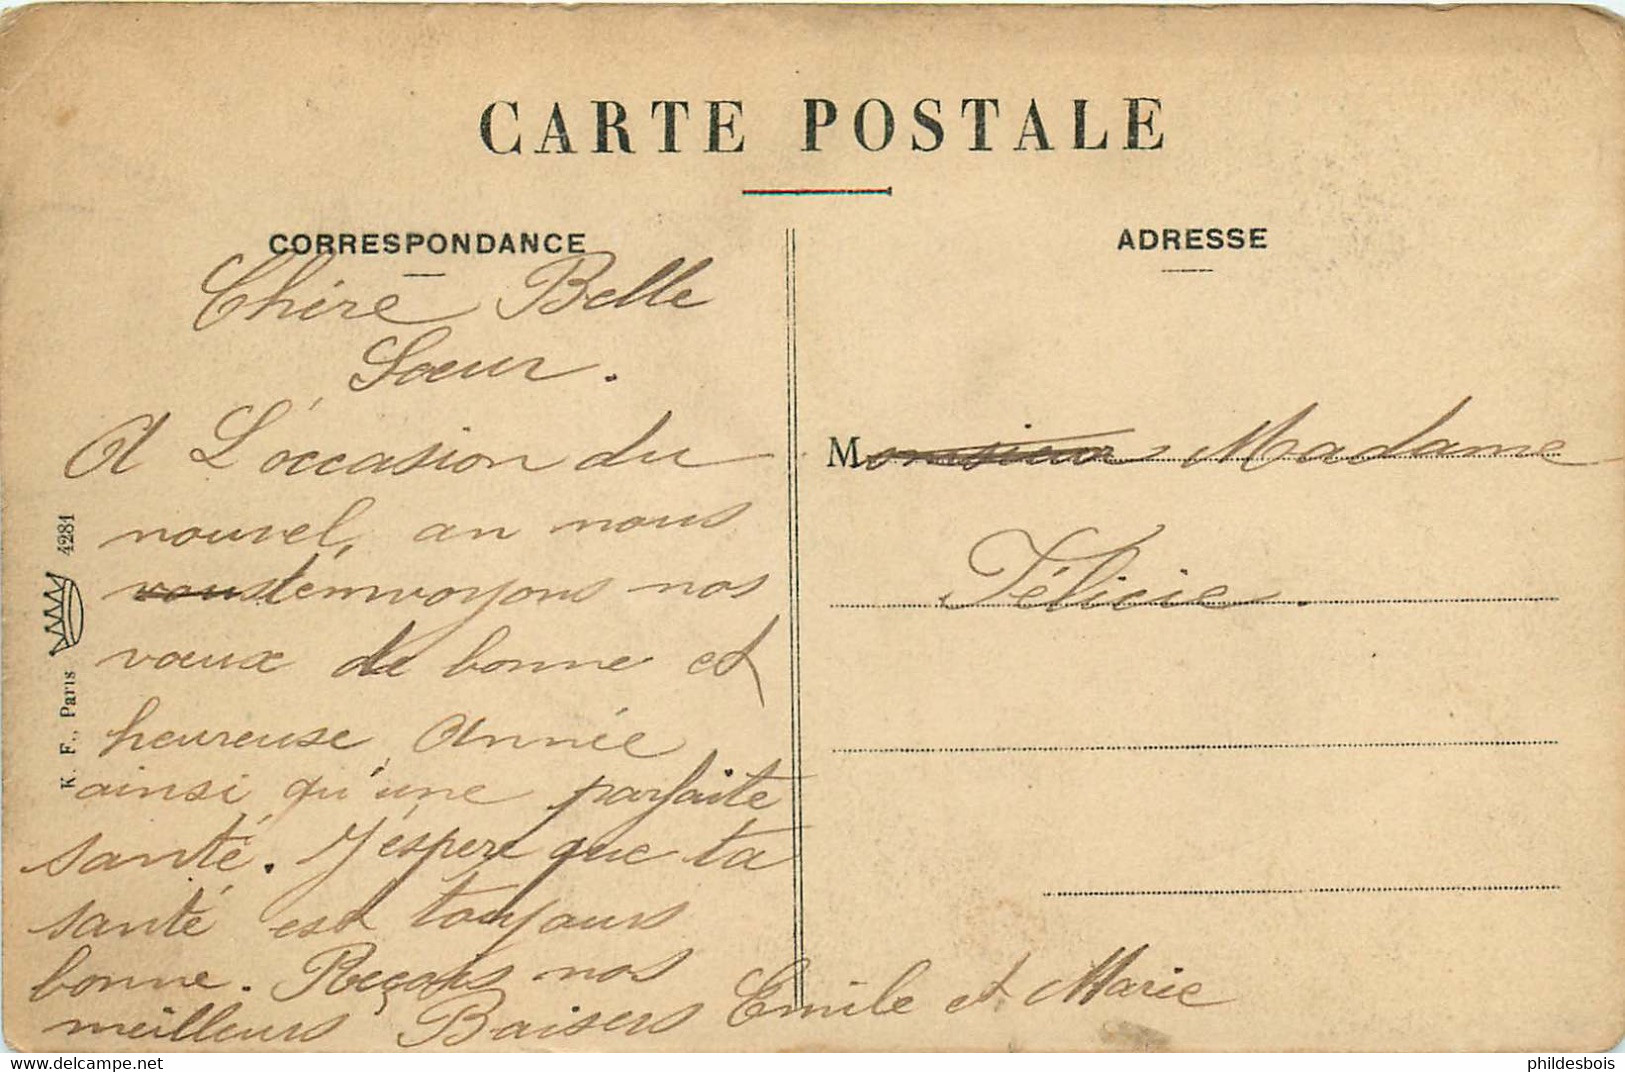 CARTE POSTALE
CORRESPONDANCE
Chère Belle
Sœur.
A L'occasion du
nouvel, an nous
vous t'envoyons nos
vœux de bonne et
heureuse Année
ainsi qu'une parfaite
santé. J'éspère que ta
santé est toujours
bonne. Reçois nos
meilleurs Baisers Emile et Marie
ADRESSE
Monsieur Madame
Félicie.
K. F., Paris 4281
phildesbois